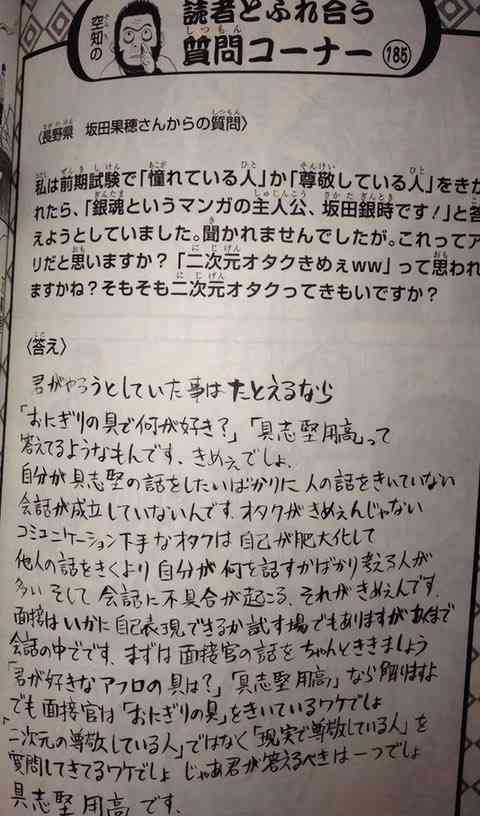 空知の
読者とふれ合う
質問コーナー
185
〈長野県 坂田果穂さんからの質問〉
私は前期試験で「憧れている人」か「尊敬している人」をきか
れたら、「銀魂というマンガの主人公、坂田銀時です!」と答
えようとしていました。聞かれませんでしたが。これってア
リだと思いますか?「二次元オタクきめぇww」って思われ
ますかね?そもそも二次元オタクってきもいですか?
〈答え〉
君がやろうとしていた事は たとえるなら
「おにぎりの具で何が好き?」「具志堅用高」って
答えてるようなもんです、きめぇでしょ、
自分が具志堅の話をしたいばかりに 人の話をきいていない
会話が成立していないんです、オタクがきめぇんじゃない
コミュニケーション下手なオタクは 自己が肥大化して
他人の話をきくより 自分が何を話すかばかり考える人が
多い そして 会話に不具合が起こる、それがきめぇんです、
面接はいかに自己表現できるか試す場でもありますがあくまで
会話の中でです、まずは 面接官の話をちゃんとききましょう
「君が好きなアフロの具は?」「具志堅用高」なら解りますよ
でも面接官は「おにぎりの具」をきいているワケでしょ
「二次元の尊敬している人」ではなく「現実で尊敬している人」を
質問してきてるワケでしょ じゃあ君が答えるべきは一つでしょ
具志堅用高です、